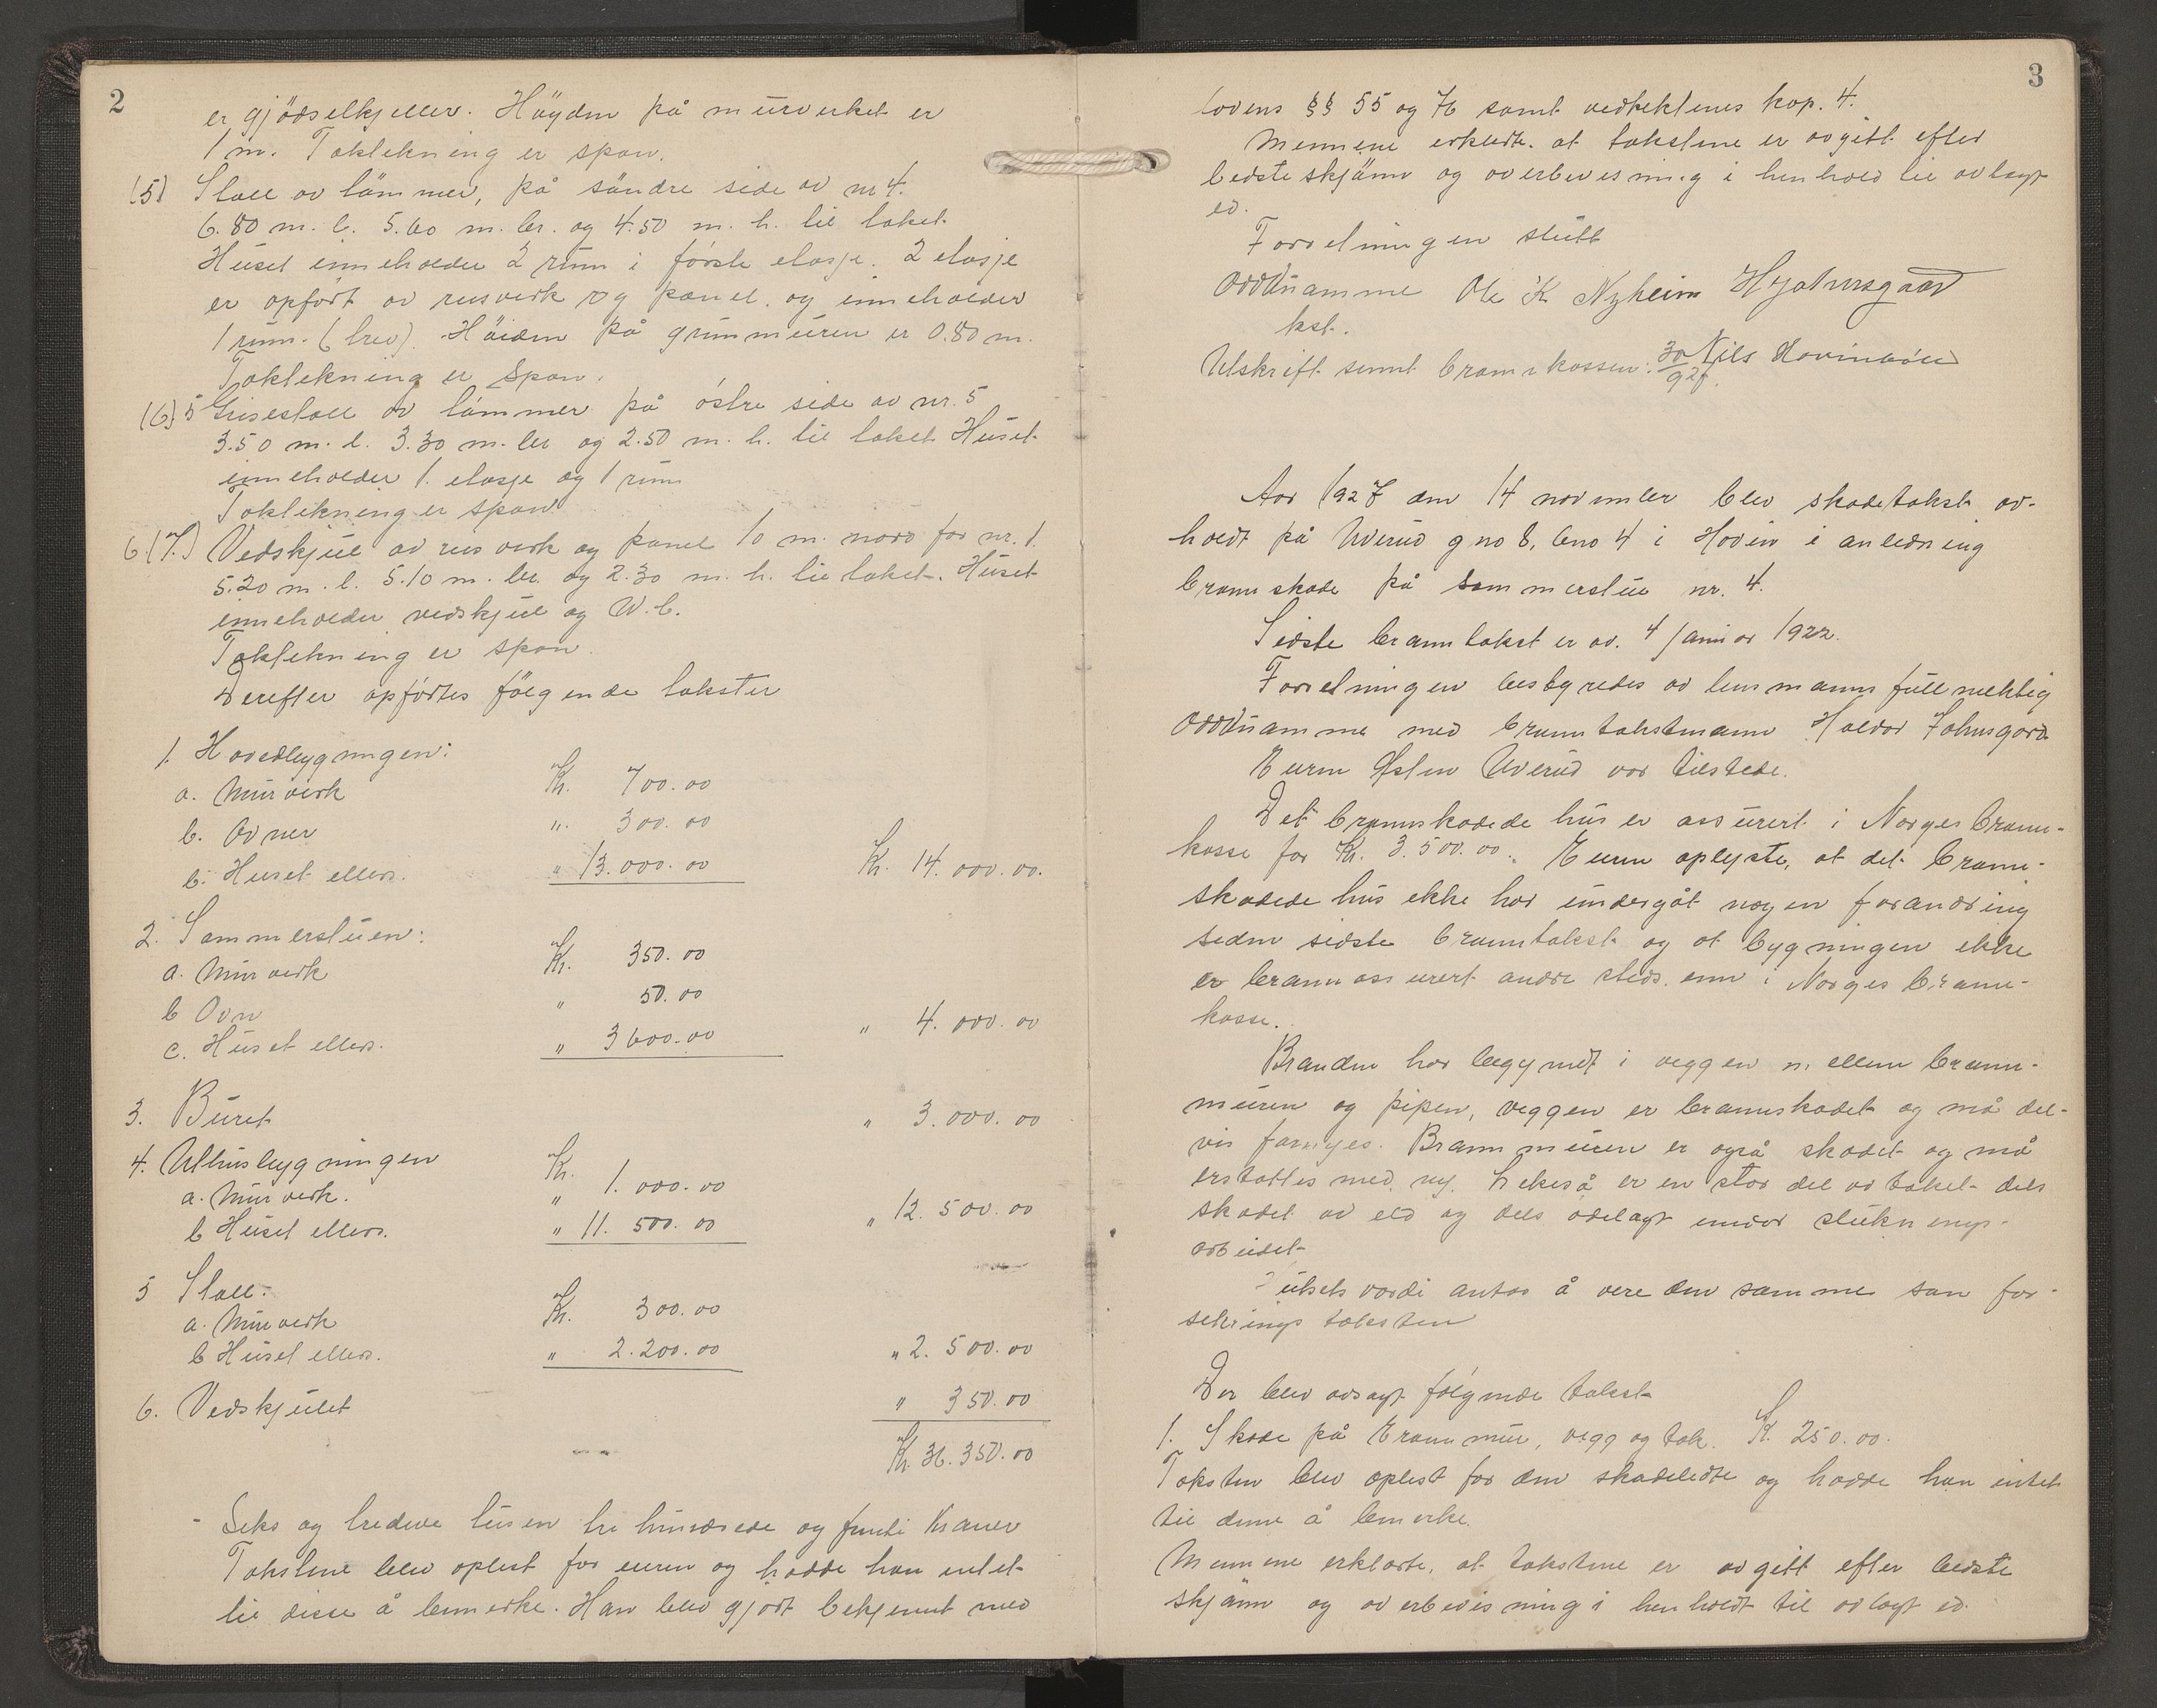 2
er gjödselkjeller. Höyden på murverket er
1 m. Taktekning er spon.
(5) Stall av tömmer, på söndre side av nr 4.
6.80 m. l. 5.60 m. br. og 4.50 m. h. til taket.
Huset inneholder 2 rum i förste etasje. 2 etasje
er opfört av reisverk og panel. og inneholder
1 rum. (trev). Höiden på grunnmuren er 0.80 m.
Taktekning er spon.
(6) 5 Grisestall av tömmer på östre side av nr. 5
3.50 m. l. 3.30 m. br og 2.50 m. h. til taket. Huset
inneholder 1. etasje og 1 rum
Taktekning er spon
6 (7.) Vedskjul av reisverk og panel 10 m. nord for nr. 1.
5.20 m. l. 5.10 m. br. og 2.30 m. h. til taket. Huset
inneholder vedskjul og W.C.
Taktekning er spon.
Derefter opförtes fölgende takster
1. Hovedbygningen:
a. Murverk Kr. 700.00
b. Ovner " 300.00
c. Huset ellers. " 13.000.00 Kr. 14.000.00.
2. Sommerstuen:
a. Murverk Kr. 350.00
b Ovn " 50.00
c. Huset ellers. " 3600.00 " 4.000.00
3. Buret " 3.000.00
4. Uthusbygningen Kr.
a. Murverk. " 1.000.00
b Huset ellers. " 11.500.00 " 12.500.00
5 Stall:
a. Murverk Kr. 300.00
b Huset ellers. " 2.200.00 " 2.500.00
6. Vedskjulet " 350.00
Kr. 36.350.00
Seks og tredve tusen tre hundrede og femti kroner
Takstene blev oplest for eieren og hadde han intet
til disse å bemerke. Han blev gjort bekjennt med
3
lovens §§ 55 og 76 samt vedtektenes kap. 4.
Mennene erklærte. at takstene er avgitt efter
bedste skjönn og overbevisning i henhold til avlagt
ed.
Forretningen slutt
Oddvin Ole K Nyheim H Johnsgaard
kst.
Utskrift sennt brannkassen: 30/9 27. Nils Hovinbøle
Aar 1927 den 14 november blev skadetakst av-
holdt på Uverud gno 8, bno 4 i Hovin i anledning
brannskade på sommerstue nr. 4.
Sidste branntakst er av. 4 januar 1922.
Forretningen bestyredes av lensmannsfullmektig
med branntakstmann Halvor Johnsgård
Eieren Østen Uverud var tilstede.
Det brannskadede hus er assurert i Norges brann-
kasse for Kr. 3.500.00. Eieren oplyste, at det brann-
skadede hus ikke har undergåt nogen forandring
siden sidste branntakst og at bygningen ikke
er brannassurert andre steds. enn i Norges brann-
kasse.
Branden har begyndt i veggen mellem brann-
muren og pipen, veggen er brannskadet og må del-
vis fornyes. Brannmuren er også skadet og må
erstattes med ny. Likeså er en stor del av taket dels
skadet av eld og dels ödelagt under sluknings-
arbeidet
Husets verdi antas å være den samme som for-
sikrings taksten
Der blev avsagt fölgende takst
1. Skade på brannmur, vegg og tak. Kr. 250.00.
Taksten blev oplest for den skadelidte og hadde han intet
til denne å bemerke.
Mennene erklærte, at takstene er avgitt efter bedste
skjönn og overbevisning i henholdt til avlagt ed.